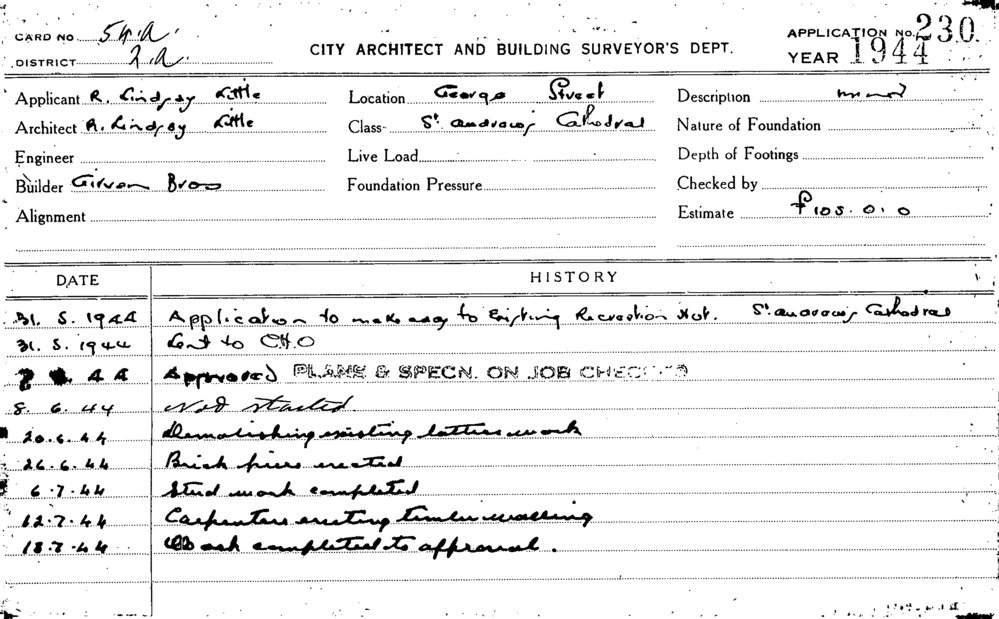 CARD NO. 54.A.
DISTRICT 2.A.
CITY ARCHITECT AND BUILDING SURVEYOR'S DEPT.
APPLICATION No. 230.
YEAR 1944
Applicant R. Lindsay Little
Location George Street
Description
Architect R. Lindsay Little
Class St. Andrew's Cathedral
Nature of Foundation
Engineer
Live Load
Depth of Footings
Builder Girvan Bros
Foundation Pressure
Checked by
Alignment
Estimate £105.0.0
DATE HISTORY
31. 5. 1944 Application to make to Existing Recreation Hut. St. Andrew's Cathedral
31. 5. 1944 Sent to C.H.O
44 Approved PLANS & SPECN. ON JOB CHECKED
8. 6. 44 Not started
20.6.44 Demolishing existing lattice work
26.6.44 Brick piers erected
6.7.44 Stud work completed
12.7.44 Carpenters erecting timber walling
18.7.44 Work completed to approval.